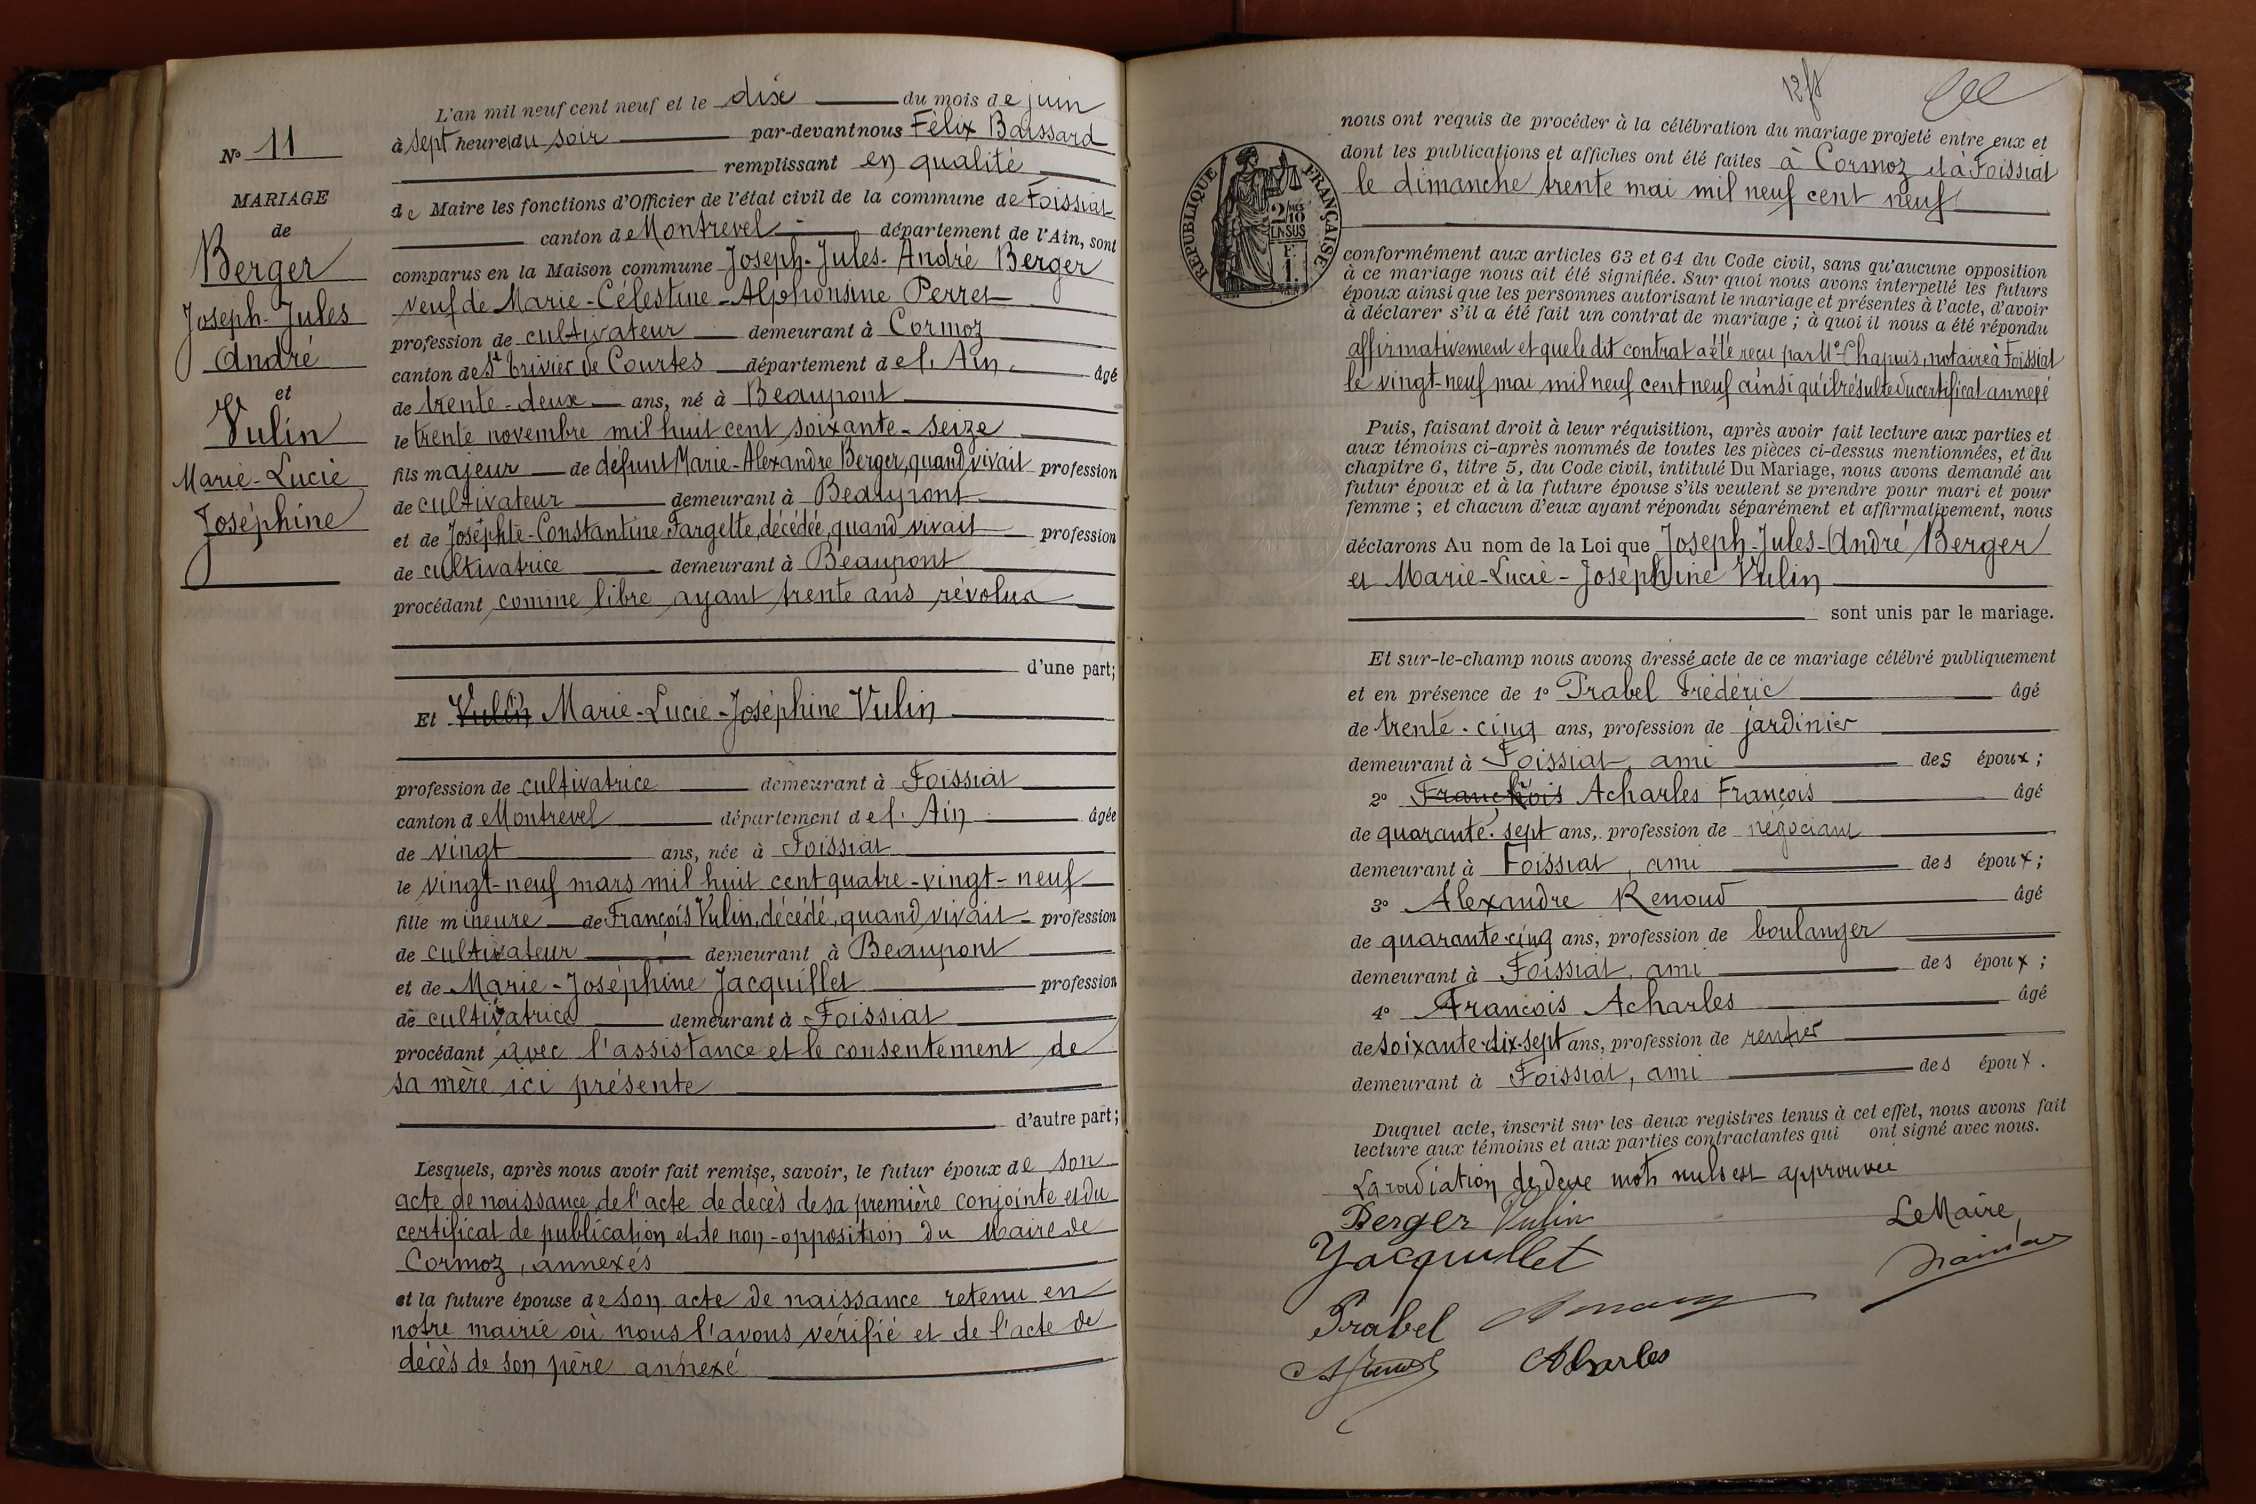 N° 11
MARIAGE
de
Berger
Joseph-Jules
André
et
Vulin
Marie-Lucie
Joséphine
L'an mil neuf cent neuf et le dix du mois de juin
à sept heures du soir par-devant nous Félix Baissard
remplissant en qualité
de Maire les fonctions d'Officier de l'état civil de la commune de Foissiat
canton de Montrevel département de l'Ain, sont
comparus en la Maison commune Joseph-Jules-André Berger
veuf de Marie-Célestine-Alphonsine Perret
profession de cultivateur demeurant à Cormoz
canton de St Trivier de Courtes département de l'Ain âgé
de trente-deux ans, né à Beaupont
le trente novembre mil huit cent soixante-seize
fils majeur de défunt Marie-Alexandre Berger, quand vivait profession
de cultivateur demeurant à Beaupont
et de Joséphte-Constantine Fargette, décédée, quand vivait profession
de cultivatrice demeurant à Beaupont
procédant comme libre ayant trente ans révolus
d'une part;
Et Vulin Marie-Lucie-Joséphine Vulin
profession de cultivatrice demeurant à Foissiat
canton de Montrevel département de l'Ain âgée
de vingt ans, née à Foissiat
le vingt-neuf mars mil huit cent quatre-vingt-neuf
fille mineure de François Vulin, décédé, quand vivait profession
de cultivateur demeurant à Beaupont
et de Marie-Joséphine Jacquillet profession
de cultivatrice demeurant à Foissiat
procédant avec l'assistance et le consentement de
sa mère ici présente
d'autre part;
Lesquels, après nous avoir fait remise, savoir, le futur époux de son
acte de naissance de l'acte de décès de sa première conjointe et du
certificat de publication et de non-opposition du Maire de
Cormoz, annexés
et la future épouse de son acte de naissance retenu en
notre mairie où nous l'avons vérifié et de l'acte de
décès de son père annexé
RÉPUBLIQUE FRANÇAISE
2/10
EN SUS
1 F.
nous ont requis de procéder à la célébration du mariage projeté entre eux et
dont les publications et affiches ont été faites à Cormoz et à Foissiat
le dimanche trente mai mil neuf cent neuf
conformément aux articles 63 et 64 du Code civil, sans qu'aucune opposition
à ce mariage nous ait été signifiée. Sur quoi nous avons interpellé les futurs
époux ainsi que les personnes autorisant le mariage et présentes à l'acte, d'avoir
à déclarer s'il a été fait un contrat de mariage; à quoi il nous a été répondu
affirmativement et que le dit contrat a été reçu par Me Chapuis, notaire à Foissiat
le vingt-neuf mai mil neuf cent neuf ainsi qu'il résulte du certificat annexé
Puis, faisant droit à leur réquisition, après avoir fait lecture aux parties et
aux témoins ci-après nommés de toutes les pièces ci-dessus mentionnées, et du
chapitre 6, titre 5, du Code civil, intitulé Du Mariage, nous avons demandé au
futur époux et à la future épouse s'ils veulent se prendre pour mari et pour
femme; et chacun d'eux ayant répondu séparément et affirmativement, nous
déclarons Au nom de la Loi que Joseph-Jules-André Berger
et Marie-Lucie-Joséphine Vulin
sont unis par le mariage.
Et sur-le-champ nous avons dressé acte de ce mariage célébré publiquement
et en présence de 1° Prabel Frédéric âgé
de trente-cinq ans, profession de jardinier
demeurant à Foissiat, ami des époux;
2° François Acharles François âgé
de quarante-sept ans, profession de négociant
demeurant à Foissiat, ami des époux;
3° Alexandre Renoud âgé
de quarante-cinq ans, profession de boulanger
demeurant à Foissiat, ami des époux;
4° François Acharles âgé
de soixante-dix-sept ans, profession de rentier
demeurant à Foissiat, ami des époux.
Duquel acte, inscrit sur les deux registres tenus à cet effet, nous avons fait
lecture aux témoins et aux parties contractantes qui ont signé avec nous.
La radiation de deux mots nuls est approuvée
Berger Vulin
Le Maire,
Jacquillet
Prabel
Acharles